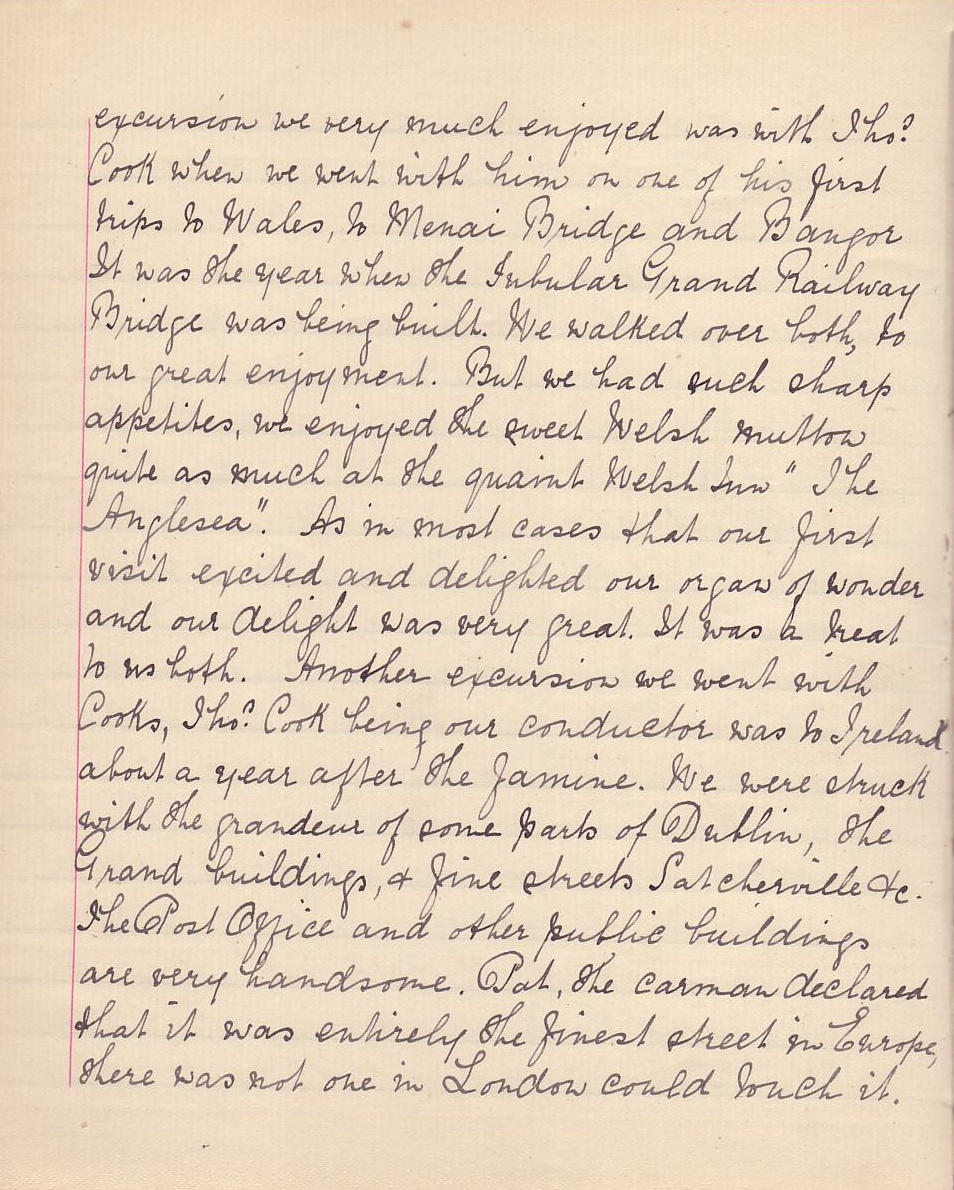 excursion we very much enjoyed was with Thos.
Cook when we went with him on one of his first
trips to Wales, to Menai Bridge and Bangor
It was the year when the Tubular Grand Railway
Bridge was being built. We walked over both, to
our great enjoyment. But we had such sharp
appetites, we enjoyed the sweet Welsh mutton
quite as much at the quaint Welsh Inn "The
Anglesea". As in most cases that our first
visit excited and delighted our organ of wonder
and our delight was very great. It was a treat
to us both. Another excursion we went with
Cooks, Thos. Cook being our conductor was to Ireland
about a year after the famine. We were struck
with the grandeur of some parts of Dublin, the
Grand buildings, & fine streets Satcherville &c.
The Post Office and other public buildings
are very handsome. Pat, the carman declared
that it was entirely the finest street in Europe,
there was not one in London could touch it.